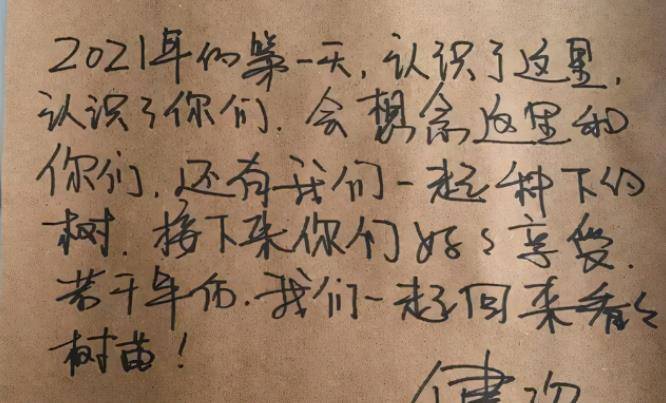 2021年的第一天，认识了这里，
认识了你们．会想念这里和
你们，还有我们一起种下的
树．接下来你们好々享受．
若干年后．我们一起回来看々
树苗！
健次